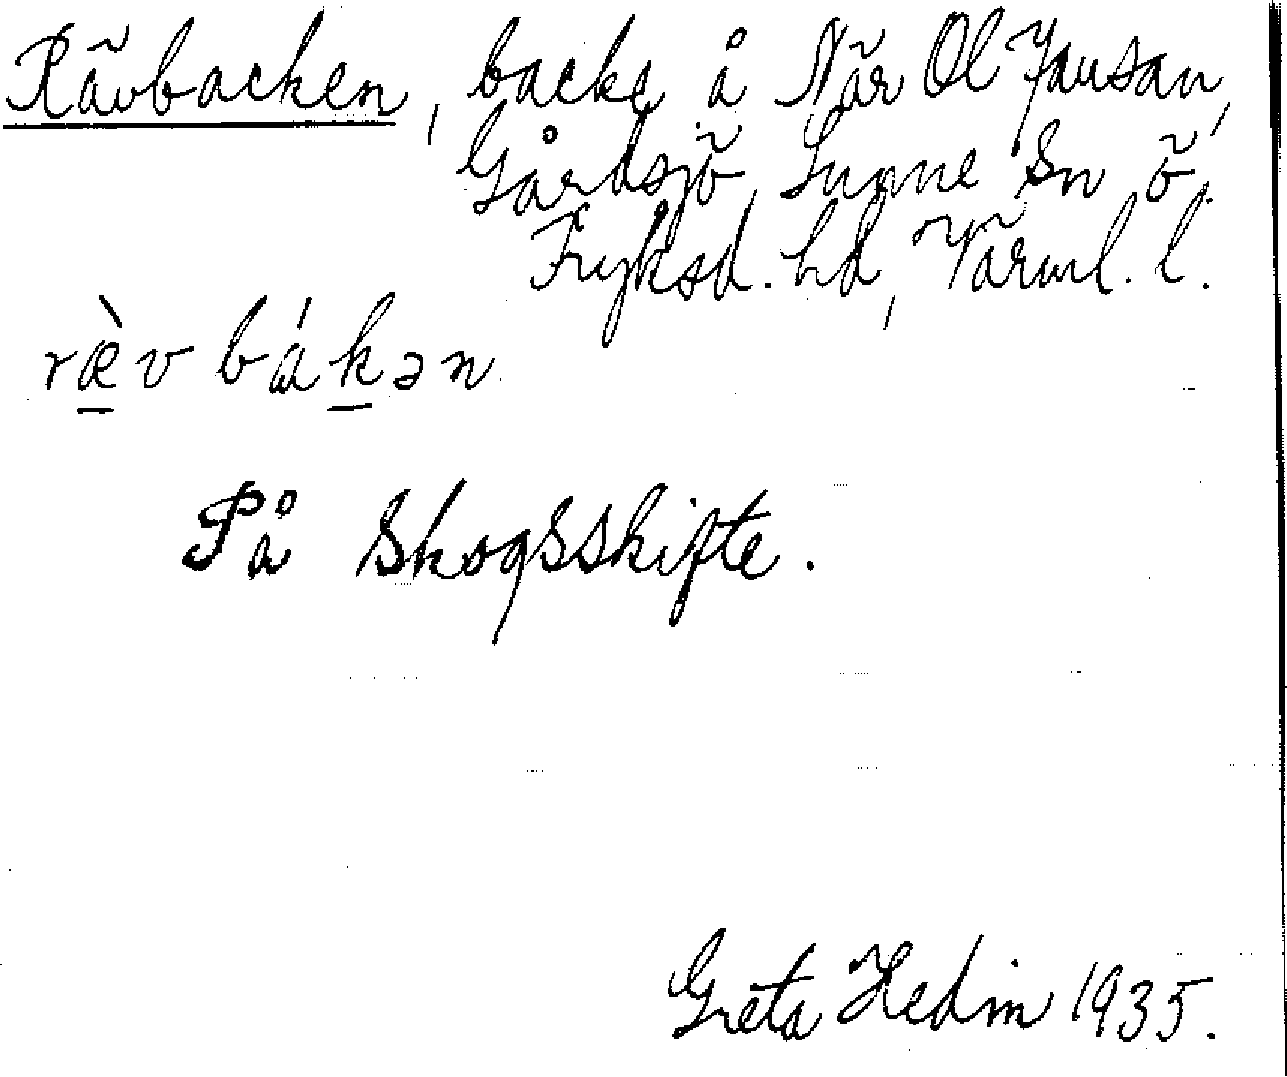 Rävbacken, backe å När Ol Jansan,
Gårdsjö, Sunne Sn Ö.
Fryksd. hd, Värml. l.
ræ̀v bákən
På Skogsskifte.
Greta Hedin 1935.